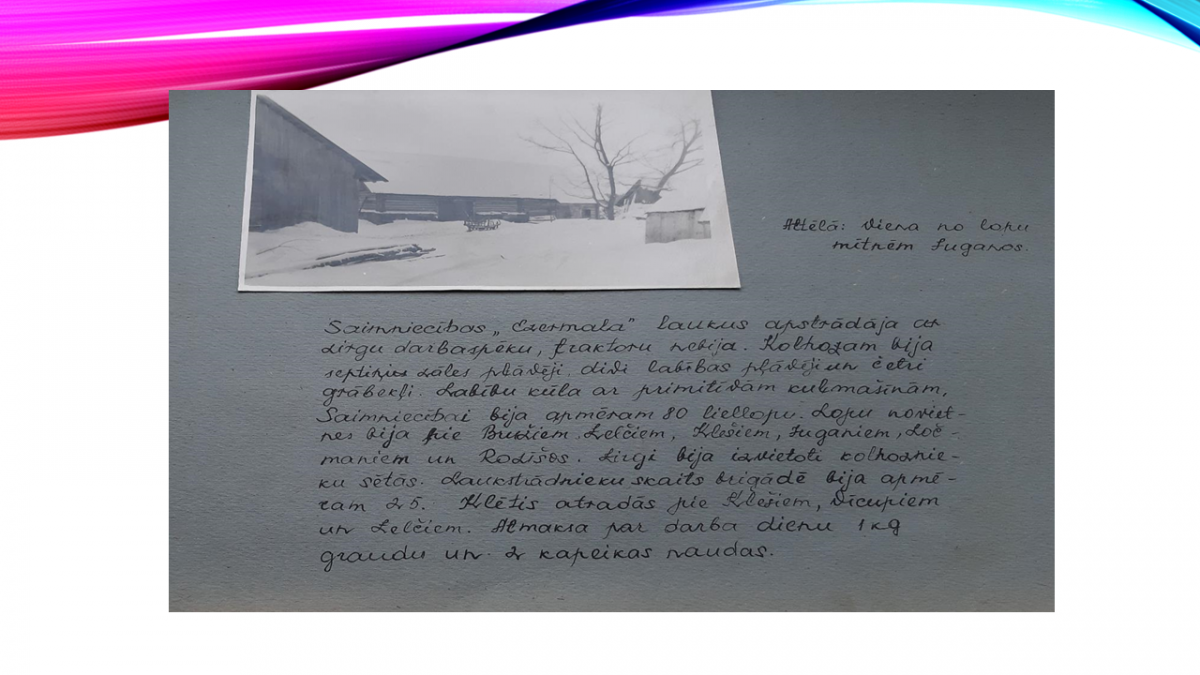 Attēlā: Viena no lopu
mītnēm Juganos.
Saimniecības „Ezermala" laukus apstrādāja ar
zirgu darbaspēku, traktoru nebija. Kolhozam bija
septiņus zāles pļāvēji, divi labības pļāvēji un četri
grābekļi. Labību kūla ar primitīvām kuļmašīnām,
Saimniecībai bija apmēram 80 liellopu. Lopu noviet-
nes bija pie Bukšiem, Zelčiem, Klešiem, Juganiem, Loč-
maniem un Rozišos. Zirgi bija izvietoti kolhoznie-
ku sētās. Laukstrādnieku skaits brigādē bija apmē-
ram 25. Klētis atradās pie Klešiem, Vīcupiem
un Zelčiem. Atmaksa par darba dienu 1 kg
graudu un 2 kapeikas naudas.